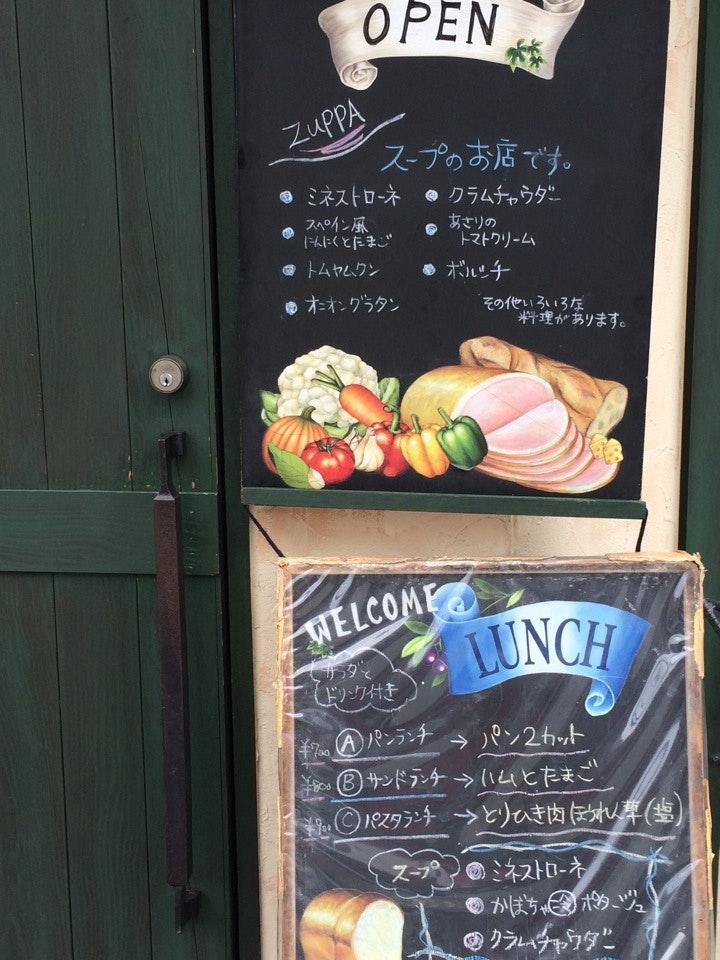 OPEN
ZUPPA
スープのお店です。
ミネストローネ
スペイン風
にんにくとたまご
トムヤムクン
オニオングラタン
クラムチャウダー
あさりの
トマトクリーム
ボルシチ
その他いろいろな
料理があります。
WELCOME
LUNCH
サラダと
ドリンク付き
¥700 A パンランチ → パン2カット
¥800 B サンドランチ → ハムとたまご
¥900 C パスタランチ → とりひき肉ほうれん草(塩)
スープ
ミネストローネ
かぼちゃ冷ポタージュ
クラムチャウダー